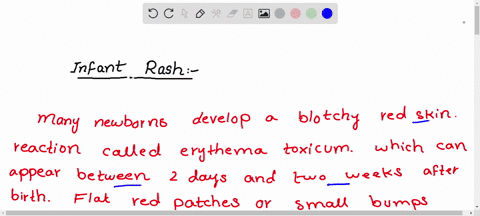 Infant Rash:-
Many newborns develop a blotchy red skin.
reaction called erythema toxicum. which can
appear between 2 days and two weeks after
birth. Flat red patches or small bumps